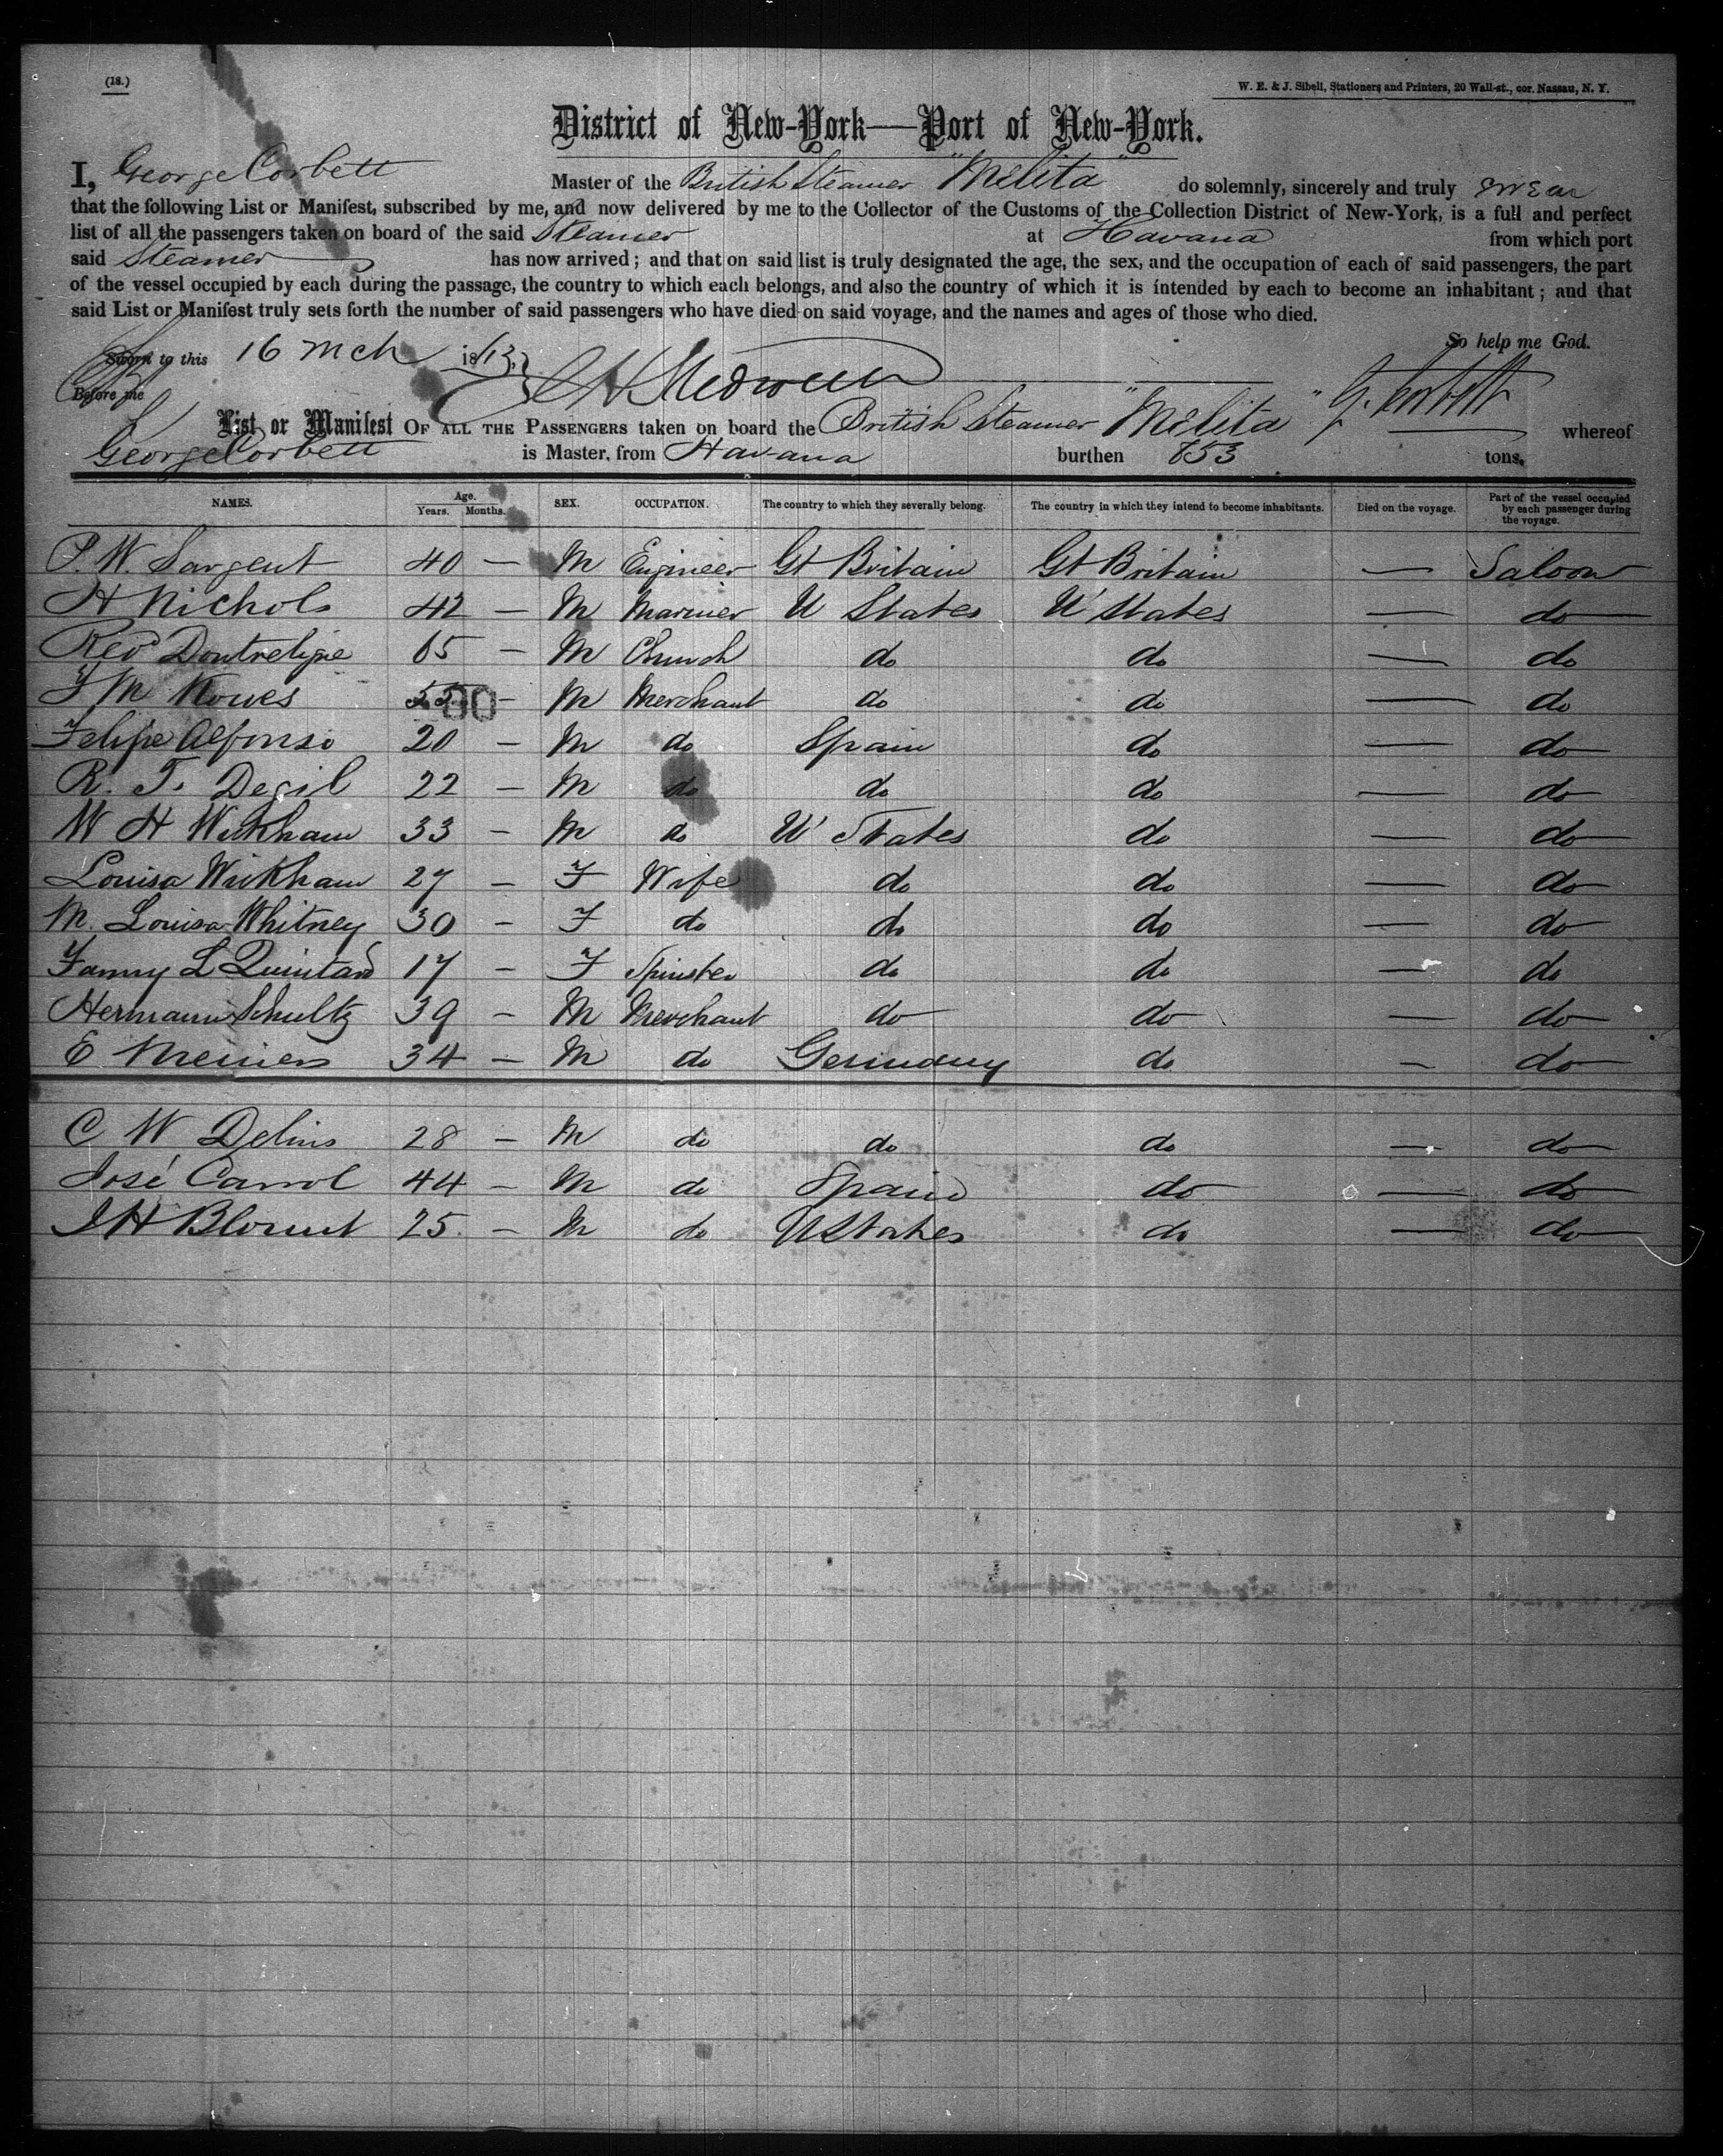 (18.)
W. E. & J. Sibell, Stationers and Printers, 20 Wall-st., cor. Nassau, N. Y.
District of New-York—Port of New-York.
I, George Corbett Master of the British Steamer "Melita" do solemnly, sincerely and truly swear
that the following List or Manifest, subscribed by me, and now delivered by me to the Collector of the Customs of the Collection District of New-York, is a full and perfect
list of all the passengers taken on board of the said Steamer at Havana from which port
said Steamer has now arrived; and that on said list is truly designated the age, the sex, and the occupation of each of said passengers, the part
of the vessel occupied by each during the passage, the country to which each belongs, and also the country of which it is intended by each to become an inhabitant; and that
said List or Manifest truly sets forth the number of said passengers who have died on said voyage, and the names and ages of those who died.
So help me God.
Sworn to this 16 Mch 18
Before me G. Corbett
List or Manifest OF ALL THE PASSENGERS taken on board the British Steamer "Melita" whereof
George Corbett is Master, from Havana burthen 853 tons.
NAMES. Age. Years. Months. SEX. OCCUPATION. The country to which they severally belong. The country in which they intend to become inhabitants. Died on the voyage. Part of the vessel occupied by each passenger during the voyage.
P. W. Sargent 40 — M Engineer Gt Britain Gt Britain — Saloon
H Nichols 42 — M Mariner U States U States — do
Rev 65 — M Church do do — do
M 55 — M Merchant do do — do
Felipe Alfonso 20 — M do Spain do — do
R. T. 22 — M do do do — do
W H Wickham 33 — M do U States do — do
Louisa Wickham 27 — F Wife do do — do
M. Louisa Whitney 30 — F do do do — do
Fanny L Quintard 17 — F Spinster do do — do
Hermann Schultz 39 — M Merchant do do — do
E 34 — M do Germany do — do
C W Delius 28 — M do do do — do
José Carrol 44 — M do Spain do — do
J H Blount 25 — M do U States do — do